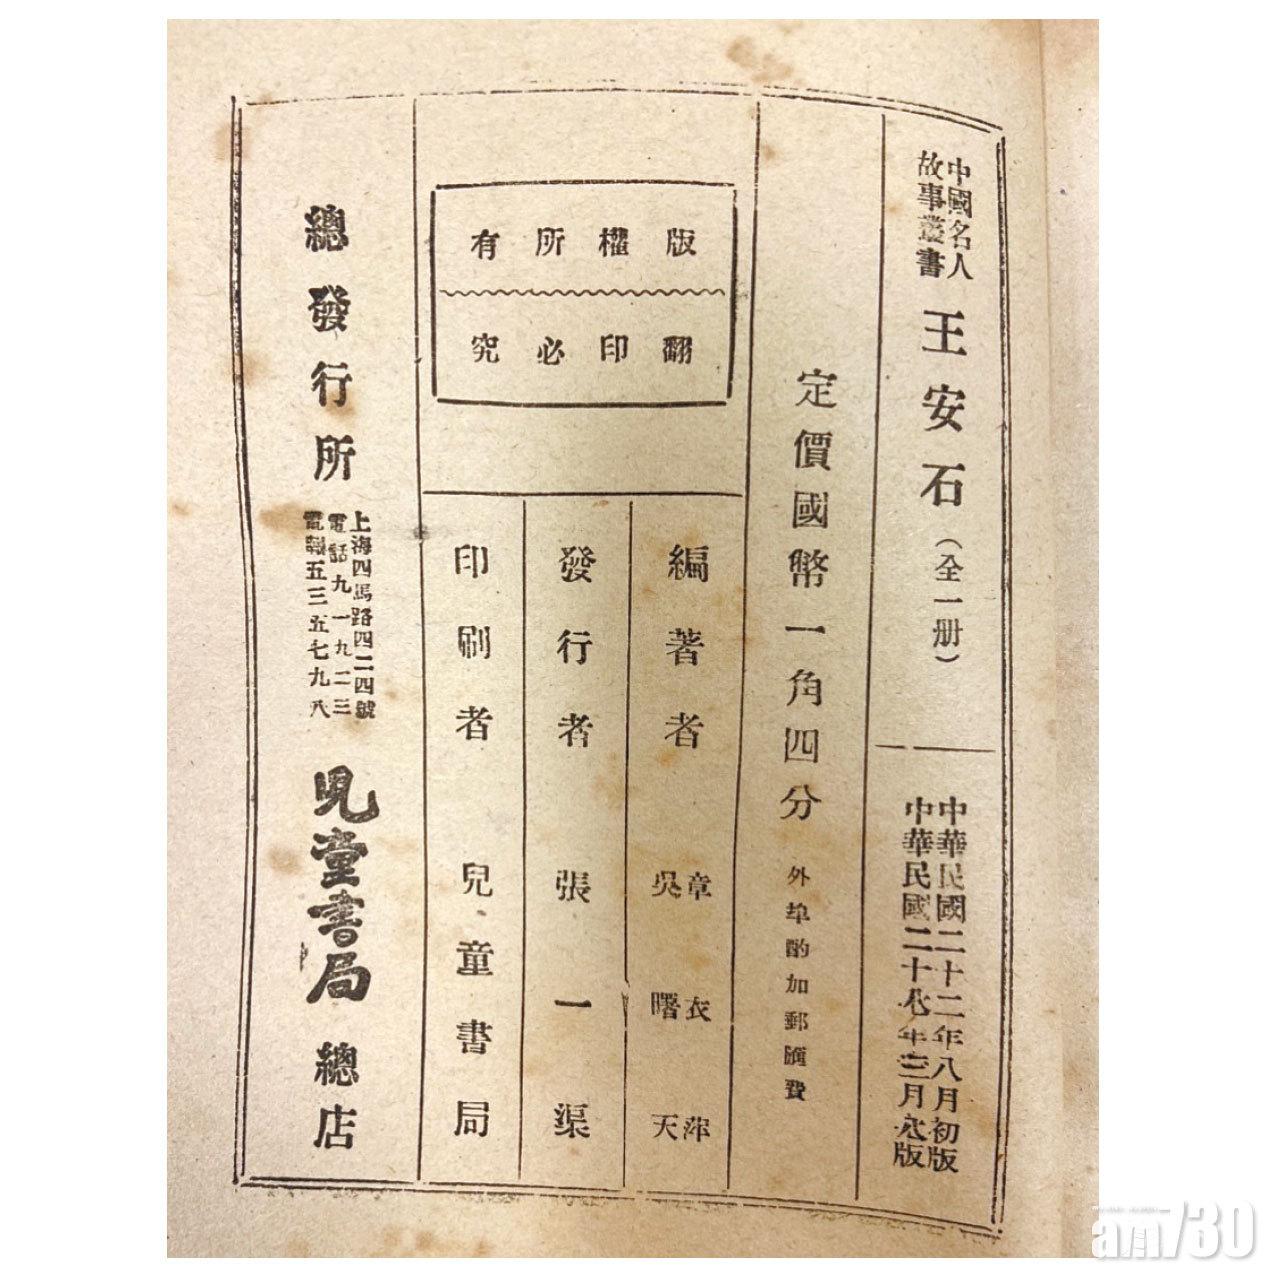 中國名人
故事叢書
王安石(全一册)
中華民國二十二年八月初版
中華民國二十七年三月九版
定價國幣一角四分
外埠酌加郵匯費
版權所有
翻印必究
編著者
章衣萍
吳曙天
發行者 張一渠
印刷者 兒童書局
總發行所
上海四馬路四二四號
電話九一九二三
電報五三五七九八
兒童書局
總店
am730